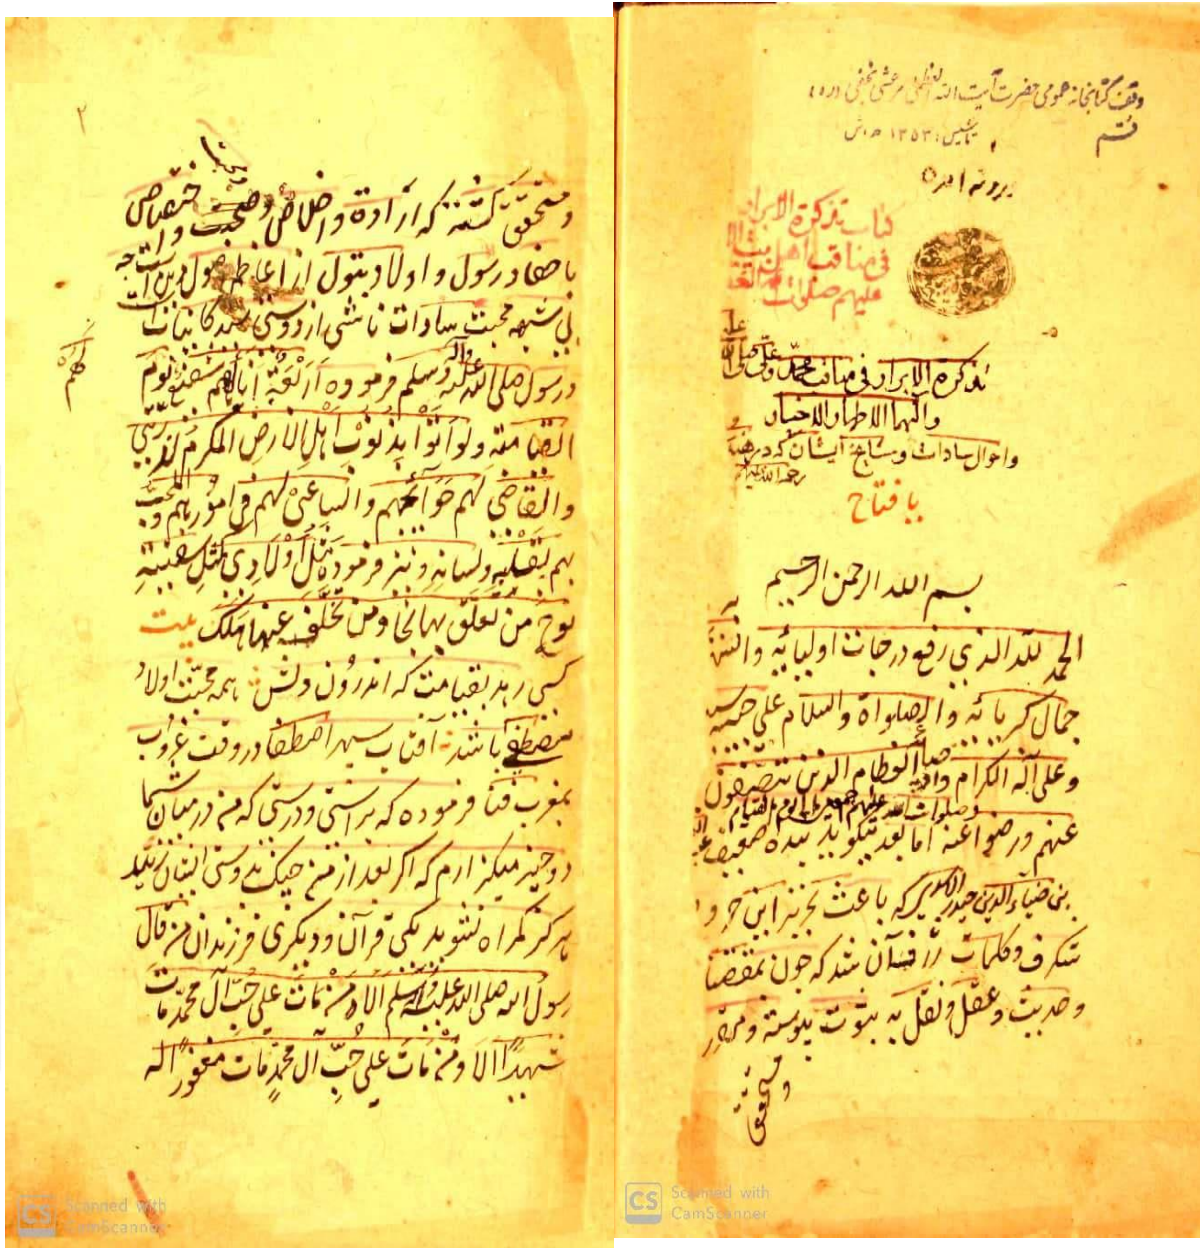 وقف کتابخانه عمومی حضرت آیت الله العظمی مرعشی نجفی (ره)
قم
تاسیس: ۱۳۵۳ ه.ش
کتاب تذکرة الابرار
فی مناقب اهل بیت
علیهم صلوات
تذکره الابرار فی مناقب محمد وعلی صلی الله علیه
وآلهما الاطهار الاخیار
واحوال سادات ومشایخ ایشان که در هند
رحمة الله علیهم
یا فتاح
بسم الله الرحمن الرحیم
الحمد لله الذی رفع درجات اولیائه
جمال کبریائه والصلواة والسلام علی حبیبه
وعلی آله الکرام واصحابه العظام الذین
وصلوات الله علیهم اجمعین الی یوم القیام
عنهم ورضوا عنه اما بعد میگوید بنده ضعیف
بن ضیاء الدین حیدر که باعث تحریر این
شگرف وکلمات شد که چون بمقتضا
وحدیث وعقل ونقل به ثبوت پیوسته و
ومتحقق
۲
ومتحقق گشته که ارادة واخلاص اختصاص
با احفاد رسول و اولاد بتول از اعاظم اصول دین است
بی شبهه محبت سادات ناشی از دوستی سید کاینات است
ورسول صلی الله علیه وآله وسلم فرموده اَرْبَعَةٌ اَنَا لَهُم شفیع یوم
القیامة ولو اَتَوْا بِذُنُوْبِ اَهْلِ الارضِ المکرم لذریتی
والقاضی لهم حَوَائِجَهم والساعی لهم فی امورهم والمحب
لهم بقلبه ولسانه ونیز فرموده مَثَلُ اَوْلَادِی کمثلِ سفینةِ
نوح مَن تعلّق بها نجا ومن تخلّف عنها هلک بیت
کسی رهد بقیامت که اندرون دلش همه محبت اولاد
مصطفی باشد آفتاب سپهر اصطفا در وقت غروب
بمغرب فنا فرموده که براستی ودرستی که من درمیان شما
دوچیز میگذارم که اگر بعد از من چنگ بدوستی ایشان زنید
هرگز گمراه نشوید یکی قرآن ودیگری فرزندان من قال
رسول الله صلی الله علیه وآله وسلم الا من مَاتَ علی حُبِّ آل محمّدٍ مَاتَ
شهیدًا الا ومن مَاتَ علی حُبِّ آل محمّدٍ مات مغفورًا له
Scanned with
CamScanner
Scanned with
CamScanner